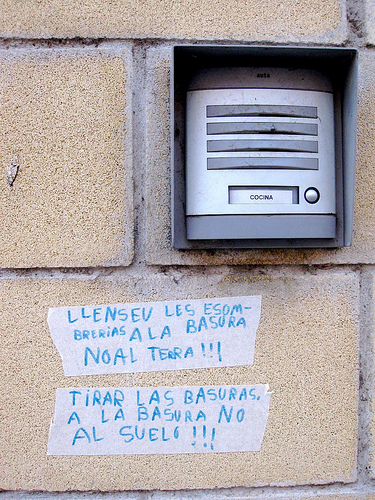 COCINA
LLENSEU LES ESOM-
BRERIAS A LA BASURA
NO AL TERRA !!!
TIRAR LAS BASURAS,
A LA BASURA NO
AL SUELO !!!